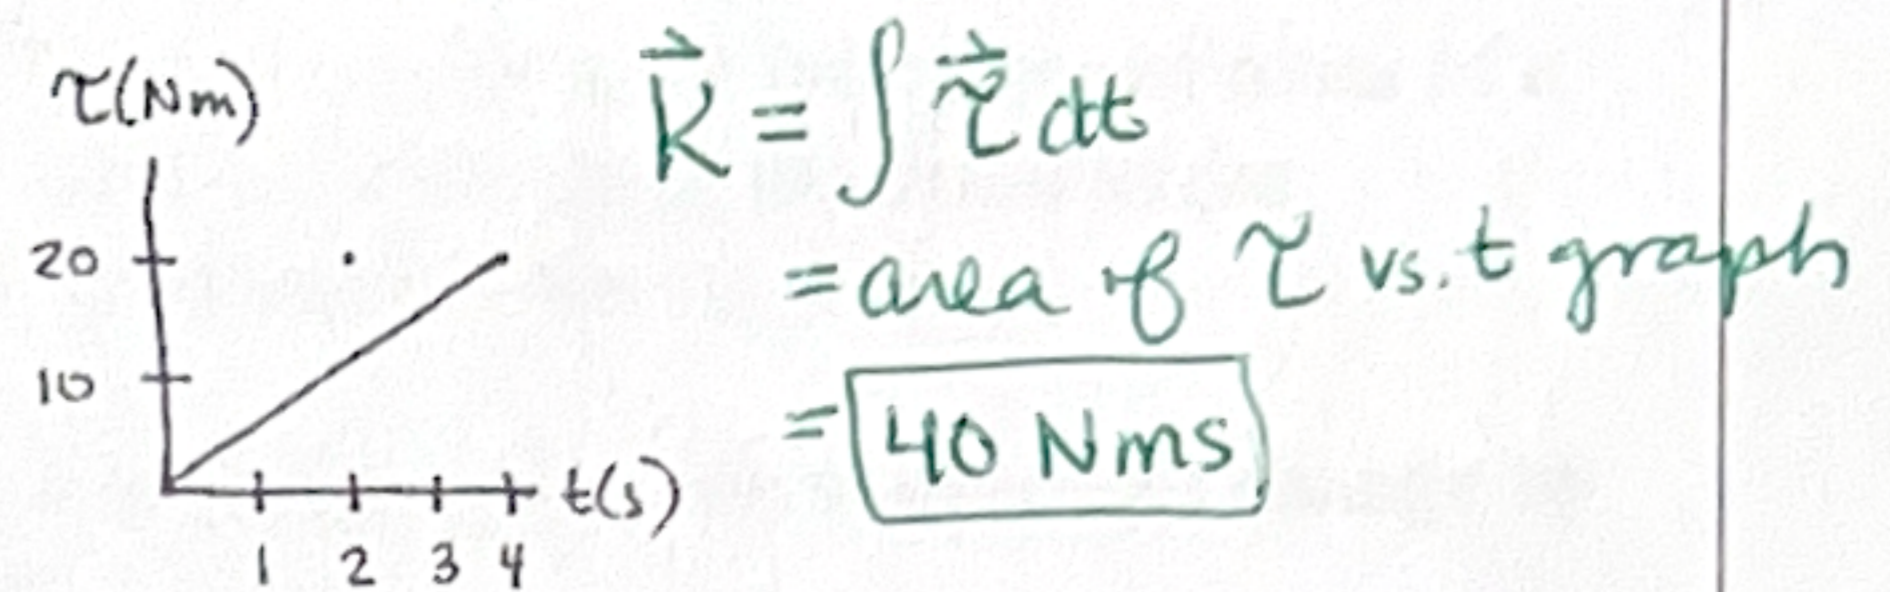 τ(Nm)
20
10
1 2 3 4 t(s)
K⃗ = ∫ τ⃗ dt
= area of τ vs. t graph
= 40 Nms